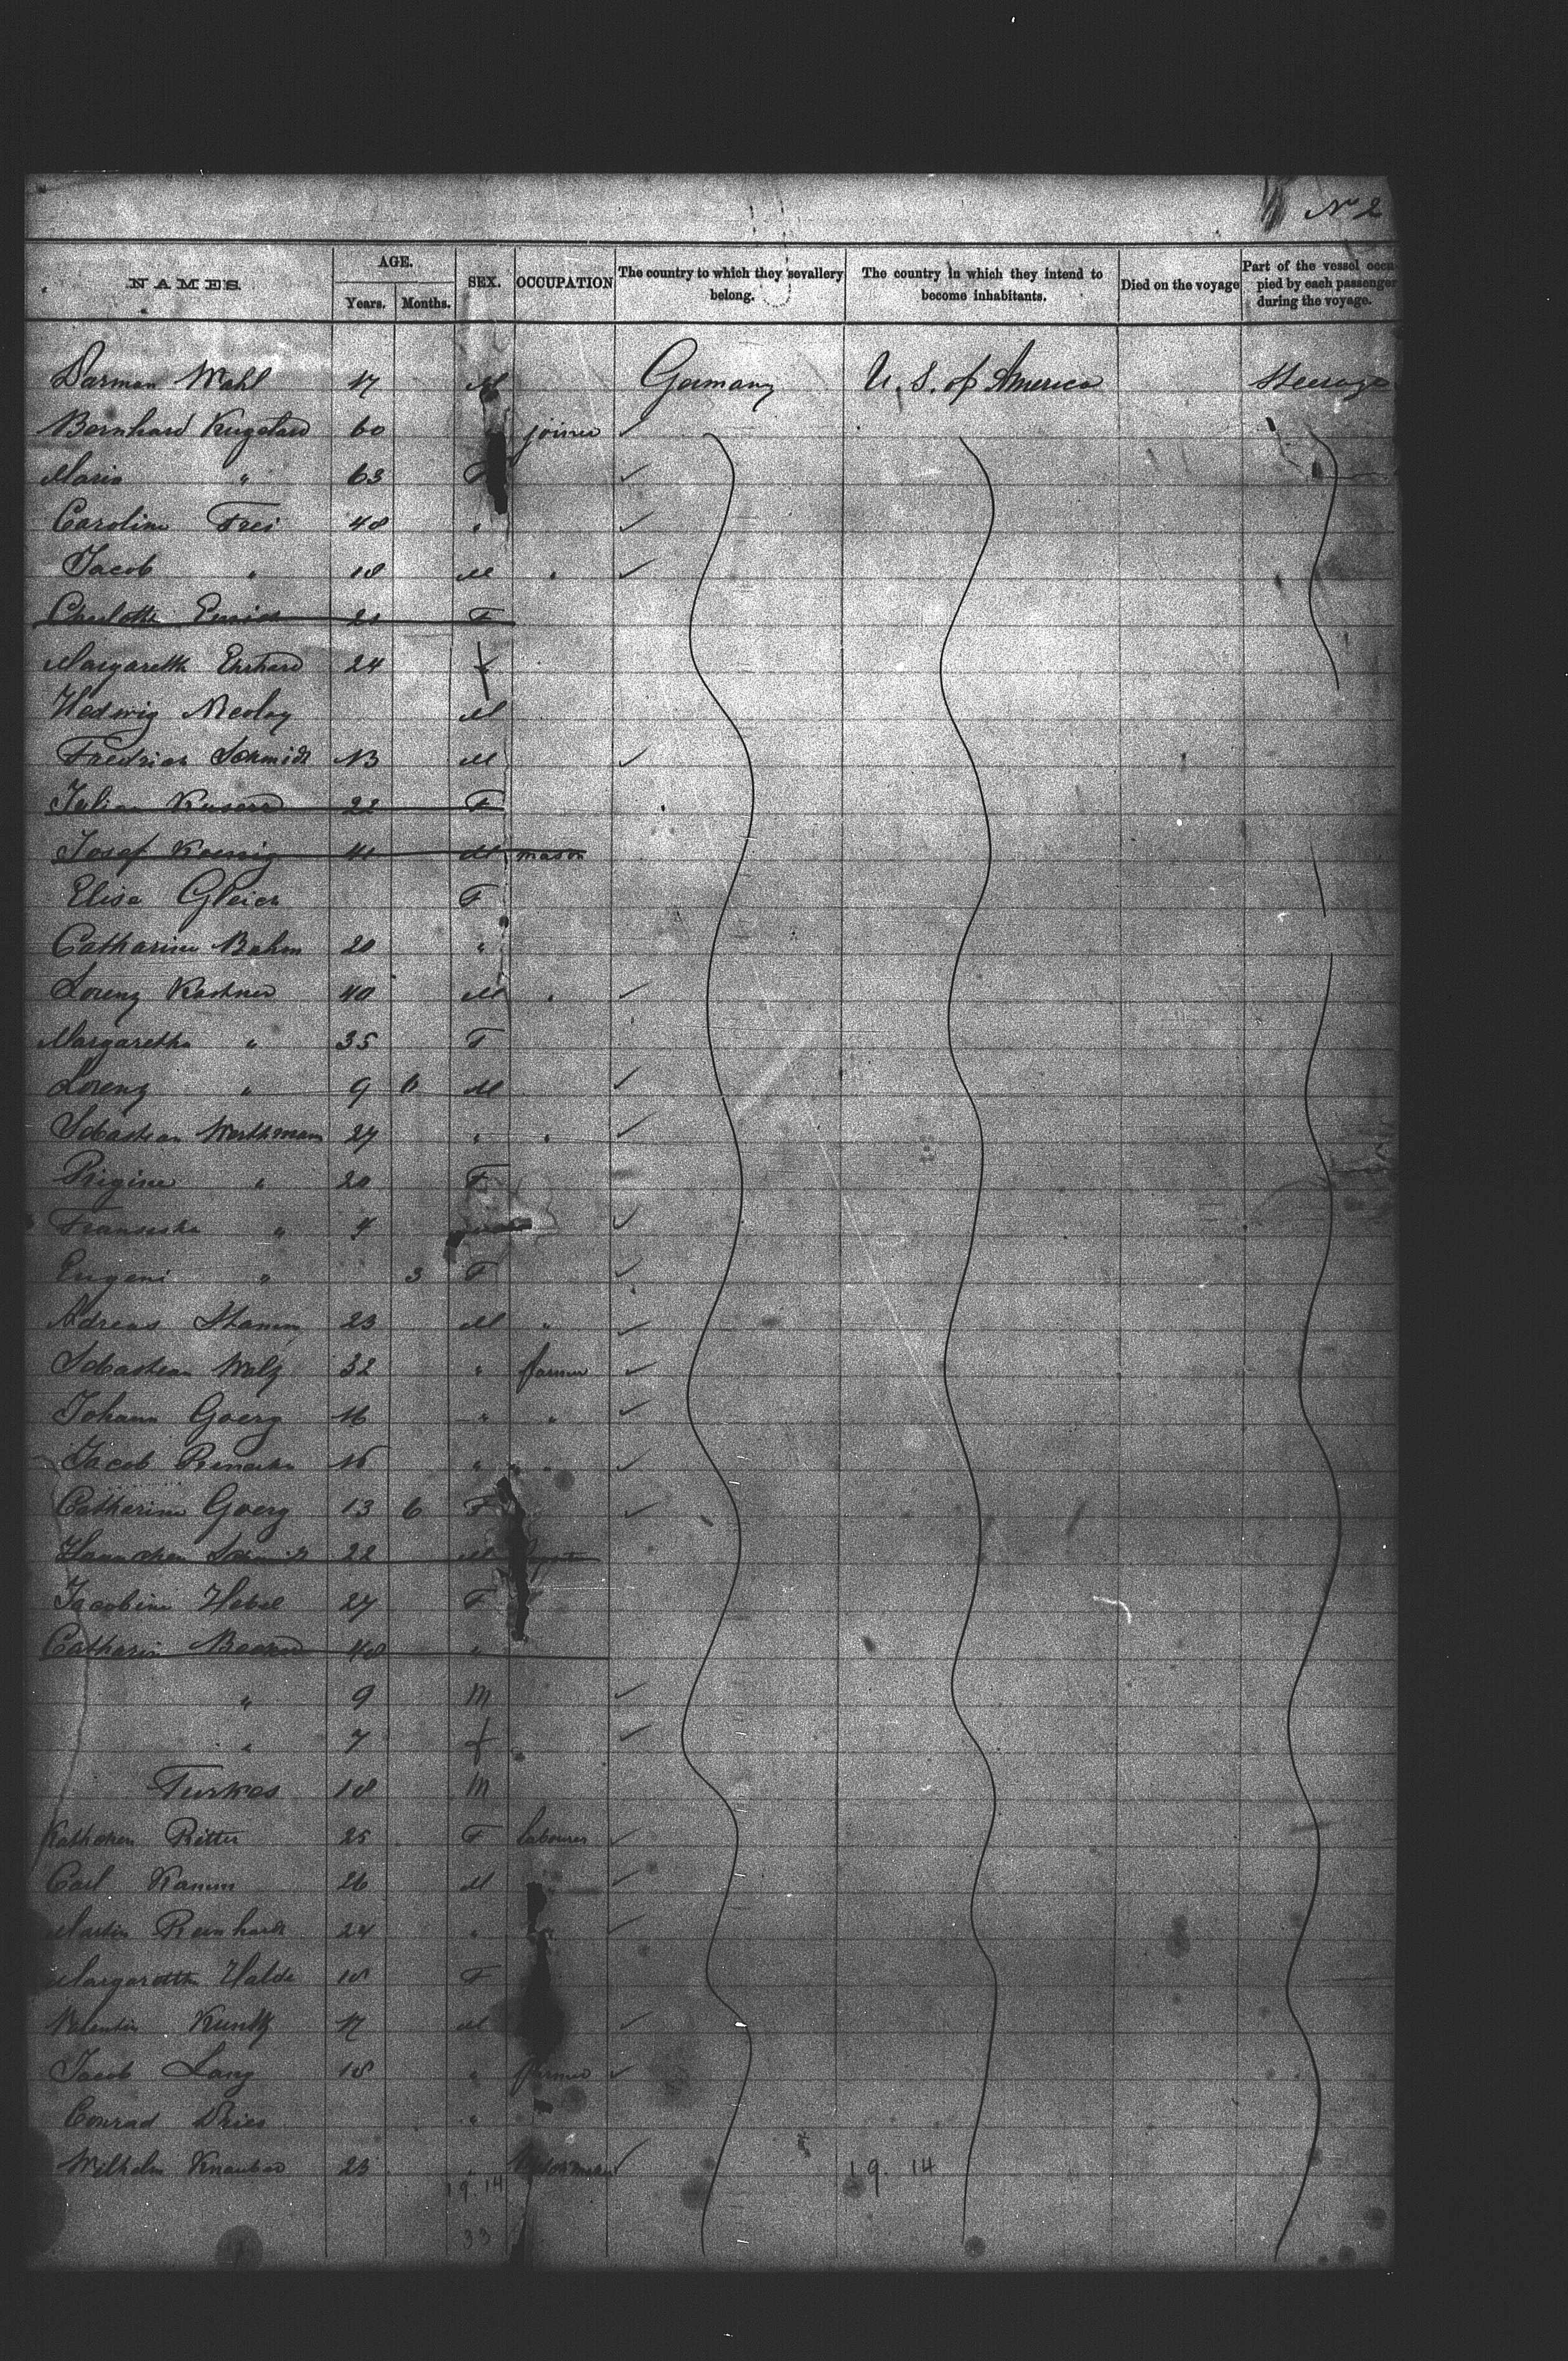 No 2
NAMES. AGE. SEX. OCCUPATION The country to which they sevallery belong. The country in which they intend to become inhabitants. Died on the voyage Part of the vessel occupied by each passenger during the voyage.
Years. Months.
Wahl 17 M Germany U. S. of America Steerage
Bernhard 60 joiner ✓
Maria " 63 F ✓
Caroline Frei 48 " ✓
Jacob " 18 M " ✓
21 F
Margareth Ehrhard 24 f
Hedwig Nicolay M
Fredrich Schmidt 13 M ✓
22 F
Josef Koenig 41 M mason
Elisa Gleich F
Catharine Bahm 20 "
Lorenz Kastner 40 M " ✓
Margaretha " 35 F
Lorenz " 9 6 M ✓
Sebastian Werthmann 27 " " ✓
Rigine " 20 F
Franziska " 4 ✓
Eugeni " 3 F ✓
Adreas Stamm 23 M " ✓
Sebastian Walz 32 " farmer ✓
Johann Goerg 16 " " ✓
Jacob 16 " " ✓
Catharine Goerg 13 6 F ✓
Hannchen Schmidt 22 M
Jacobine Hebel 27 F
Catharin 48 "
" 9 M ✓
" 7 f ✓
Turkes 18 M
Kathchen Ritter 25 F labourer ✓
Carl Kamm 26 M ✓
Martin Reinhardt 24 " ✓
Margaretha Halde 18 F
Valentin Kuntz 17 M ✓
Jacob Lang 18 " farmer ✓
Conrad Dries "
Wilhelm 23 ✓
19. 14 19. 14
33